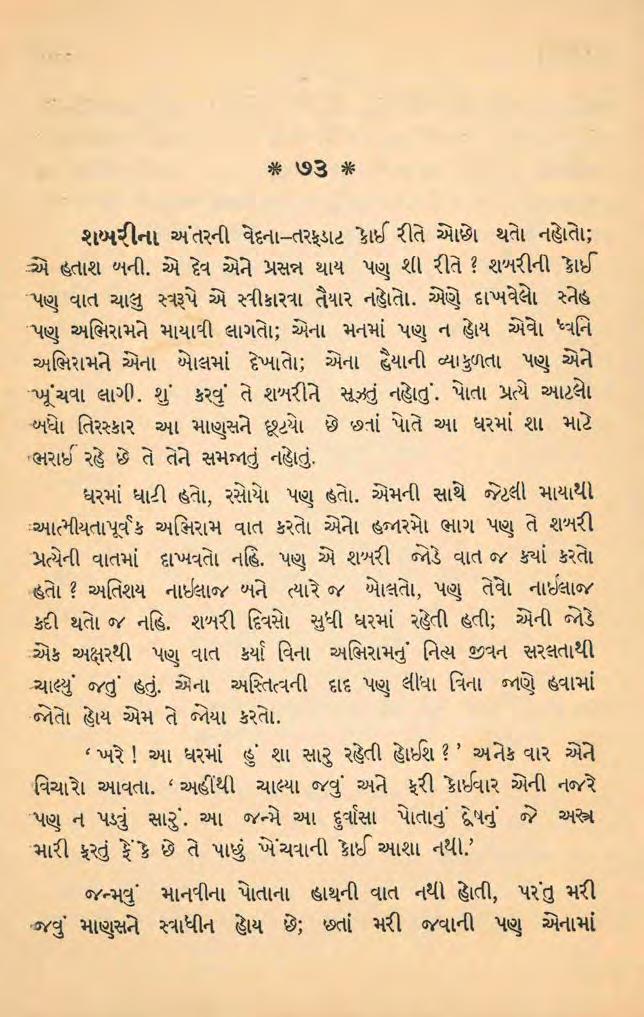 * ૭૩ *
શબરીના અંતરની વેદના–તરફડાટ કોઈ રીતે ઓછો થતો નહોતો;
એ હતાશ બની. એ દેવ એને પ્રસન્ન થાય પણ શી રીતે ? શબરીની કોઈ
પણ વાત ચાલુ સ્વરૂપે એ સ્વીકારવા તૈયાર નહોતો. એણે દાખવેલો સ્નેહ
પણ અભિરામને માયાવી લાગતો; એના મનમાં પણ ન હોય એવો ધ્વનિ
અભિરામને એના બોલમાં દેખાતો; એના હૈયાની વ્યાકુળતા પણ એને
ખૂંચવા લાગી. શું કરવું તે શબરીને સૂઝતું નહોતું. પોતા પ્રત્યે આટલો
બધો તિરસ્કાર આ માણસને છૂટયો છે છતાં પોતે આ ઘરમાં શા માટે
ભરાઈ રહે છે તે તેને સમજાતું નહોતું.
ઘરમાં ઘાટી હતો, રસોયો પણ હતો. એમની સાથે જેટલી માયાથી
આત્મીયતાપૂર્વક અભિરામ વાત કરતો એનો હજારમો ભાગ પણ તે શબરી
પ્રત્યેની વાતમાં દાખવતો નહિ. પણ એ શબરી જોડે વાત જ ક્યાં કરતો
હતો ? અતિશય નાઈલાજ બને ત્યારે જ બોલતો, પણ તેવો નાઈલાજ
કદી થતો જ નહિ. શબરી દિવસો સુધી ઘરમાં રહેતી હતી; એની જોડે
એક અક્ષરથી પણ વાત કર્યા વિના અભિરામનું નિત્ય જીવન સરલતાથી
ચાલ્યું જતું હતું. એના અસ્તિત્વની દાદ પણ લીધા વિના જાણે હવામાં
જોતો હોય એમ તે જોયા કરતો.
‘ ખરે ! આ ઘરમાં હું શા સારુ રહેતી હોઈશ ? ’ અનેક વાર એને
વિચારો આવતા. ‘ અહીંથી ચાલ્યા જવું અને ફરી કોઈવાર એની નજરે
પણ ન પડવું સારું. આ જન્મે આ દુર્વાસા પોતાનું દ્વેષનું જે અસ્ત્ર
મારી ફરતું ફેંકે છે તે પાછું ખેંચવાની કોઈ આશા નથી.’
જન્મવું માનવીના પોતાના હાથની વાત નથી હોતી, પરંતુ મરી
જવું માણસને સ્વાધીન હોય છે; છતાં મરી જવાની પણ એનામાં